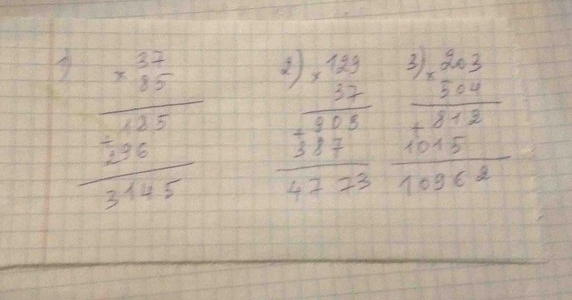 1)
× 37
85
185
+
296
3145
2)
× 129
37
+ 903
387
4773
3)
× 203
504
+ 812
1015
10962